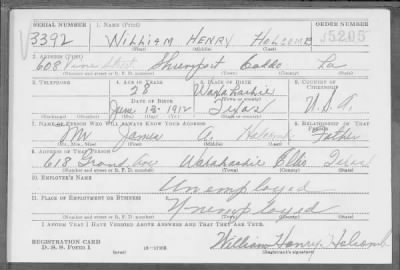 SERIAL NUMBER 1. NAME (Print) ORDER NUMBER
V 3392 WILLIAM HENRY HOLCOMB 5205
(First) (Middle) (Last)
2. ADDRESS (Print)
608 Street Shreveport Caddo La
(Number and street or R. F. D. number) (Town) (County) (State)
3. TELEPHONE 4. AGE IN YEARS 5. PLACE OF BIRTH 6. COUNTRY OF CITIZENSHIP
28 Waxahachie
DATE OF BIRTH (Town or county)
Jan 12 - 1912 Texas U.S.A.
(Mo.) (Day) (Yr.) (State or country)
7. NAME OF PERSON WHO WILL ALWAYS KNOW YOUR ADDRESS 8. RELATIONSHIP OF THAT PERSON
Mr James A. Holcomb Father
(Mr., Mrs., Miss) (First) (Middle) (Last)
9. ADDRESS OF THAT PERSON
618 Grand Ave Waxahachie Ellis Texas
(Number and street or R. F. D. number) (Town) (County) (State)
10. EMPLOYER'S NAME
Unemployed
11. PLACE OF EMPLOYMENT OR BUSINESS
Unemployed
(Number and street or R. F. D. number) (Town) (County) (State)
I AFFIRM THAT I HAVE VERIFIED ABOVE ANSWERS AND THAT THEY ARE TRUE.
REGISTRATION CARD
D. S. S. Form 1 (over) William Henry Holcomb
(Registrant's signature)